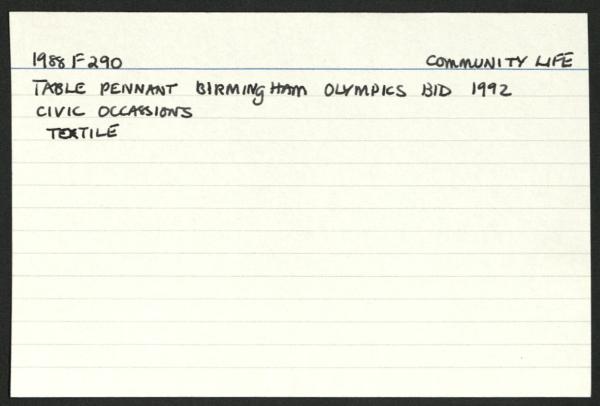 1988 F 290 COMMUNITY LIFE
TABLE PENNANT BIRMINGHAM OLYMPICS BID 1992
CIVIC OCCASSIONS
TEXTILE